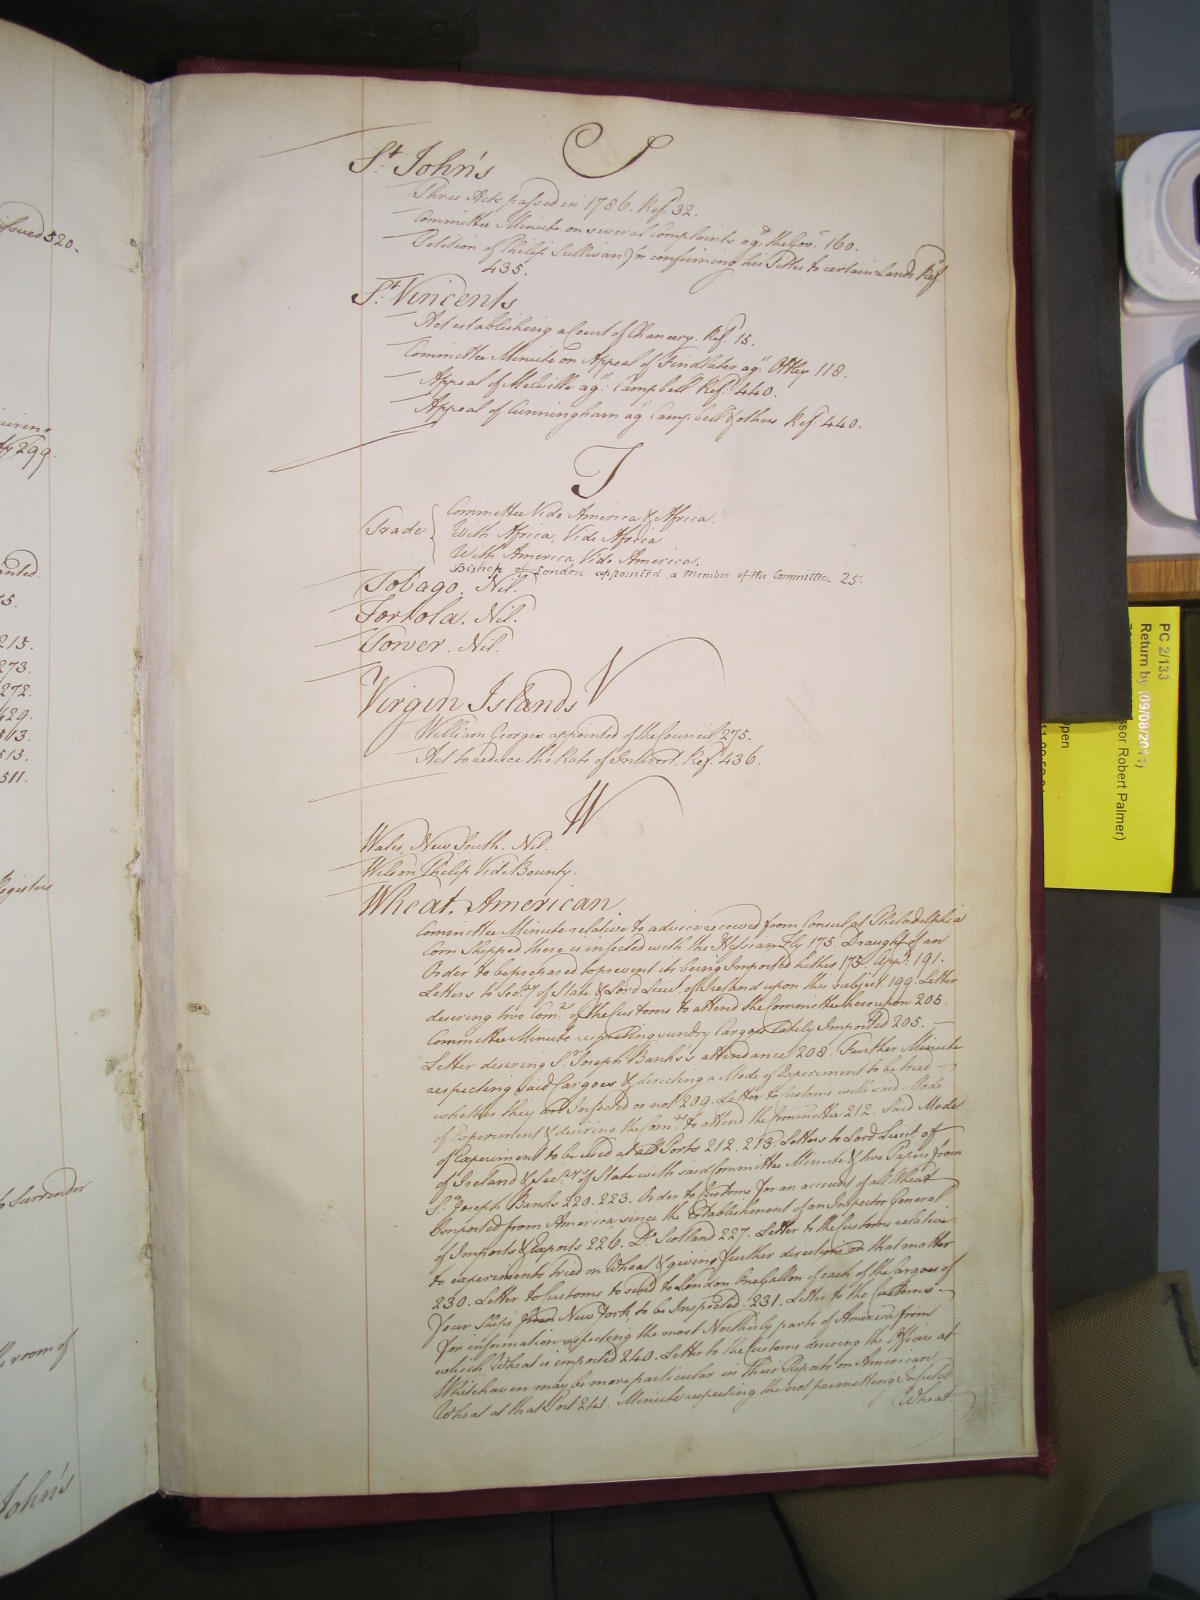 S
St. John's
Three Acts passed in 1786. Ref. 32.
Committee Minute on several Complaints agt. the Govr. 160.
Petition of Philip Sullivan for confirming his Titles to certain Lands Ref.
435.
St. Vincents
Act establishing a Court of Chancery. Ref. 15.
Committee Minute on Appeal of Findlater agt. Ottley 118.
Appeal of Melville agt. Campbell Ref. 440.
Appeal of Cunningham agt. Campbell & others Ref. 440.
T
Trade
Committee Vide America & Africa.
With Africa, Vide Africa
With America, Vide America.
Bishop of London appointed a Member of the Committee. 25.
Tobago. Nil.
Tortola. Nil.
Tower. Nil.
V
Virgin Islands
William Georges appointed of the Council 275.
Act to reduce the Rate of Interest. Ref. 436.
W
Wales, New South. Nil.
Wilson Philip Vide Bounty.
Wheat. American.
Committee Minute relative to advice received from Consul at Philadelphia
Corn Shipped there is infected with the Hessian Fly 175. Draught of an
Order to be prepared to prevent its being Imported hither 175. Appd. 191.
Letters to Secry. of State & Lord Lieut. of Ireland upon this subject 199. Letter
desiring two Comrs. of the Customs to attend the Committee thereupon 205.
Committee Minute respecting sundry Cargoes lately Imported 205.
Letter desiring Sr. Joseph Banks's attendance 208. Further Minute
respecting said Cargoes & directing a Mode of Experiment to be tried
whether they are Infected or not 209. Letter to Customs with said Mode
of Experiment & desiring the Comrs. to attend the Committee 212. Said Mode
of Experiment to be used at all Ports 212. 213. Letters to Lord Lieut. of
of Ireland & Secrys. of State with said Committee Minute & two Papers from
Sr. Joseph Banks 220. 223. Order to Customs for an account of all Wheat
Imported from America, since the Establishment of an Inspector General
of Imports & Exports 226. Do. Scotland 227. Letter to the Customs relative
to experiments tried on Wheat & giving further directions on that matter
230. Letter to Customs to send to London One Gallon of each of the Cargoes of
Four Ships from New York, to be Inspected. 231. Letter to the Customs
for information respecting the most Northerly parts of America from
which Wheat is imported 240. Letter to the Customs desiring the Officers at
Whitehaven may be more particular in their Reports on American
Wheat at that Port 241. Minute respecting the not permitting Infected
Wheat
issued 520.
299
215.
273.
272.
429.
513.
515.
511.
Register
to Surrender
the room of
John's
PC 2/133
Return by (09/08/2011)
ssor Robert Palmer)
open